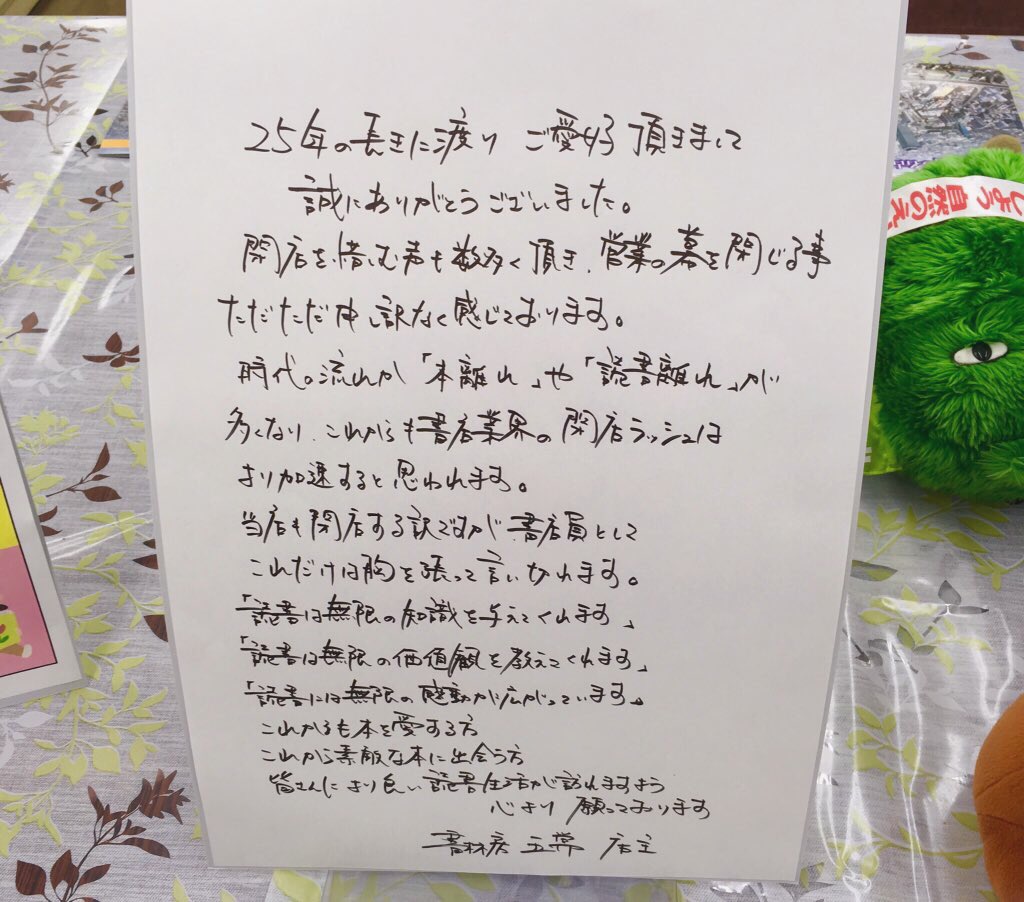 25年の長きに渡り ご愛好頂きまして
誠にありがとうございました。
閉店を惜む声も数多く頂き、営業の幕を閉じる事
ただただ申し訳なく感じております。
時代の流れか「本離れ」や「読書離れ」が
多くなり、これからも書店業界の閉店ラッシュは
より加速すると思われます。
当店も閉店する訳ですが書店員として
これだけは胸を張って言い切れます。
「読書は無限の知識を与えてくれます」
「読書は無限の価値観を教えてくれます」
「読書には無限の感動が広がっています」
これからも本を愛する方
これから素敵な本に出会う方
皆さんにより良い読書生活が訪れますよう
心より願っております
書林房 五常 店主
しよう 自然のえ